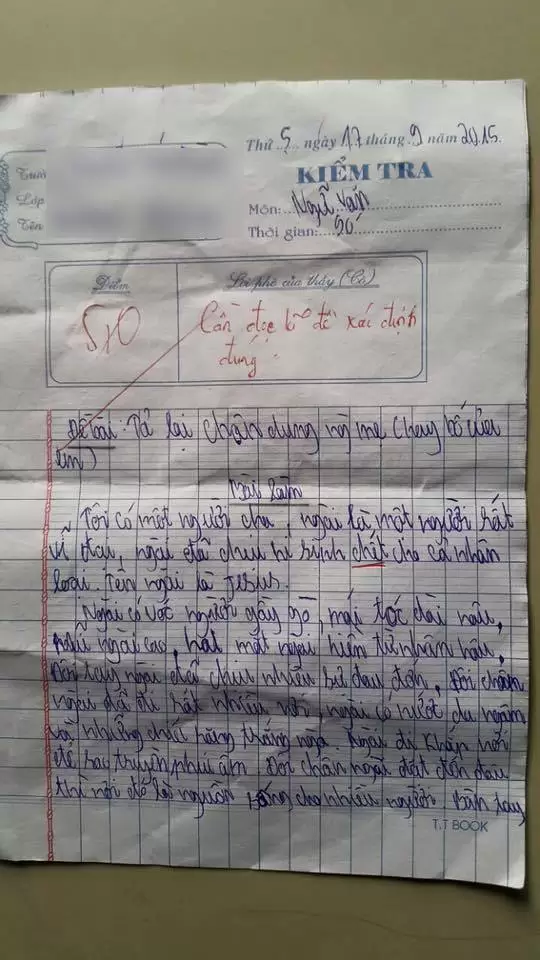 Thứ 5, ngày 17 tháng 9 năm 2015.
KIỂM TRA
Trườ
Lớp
Tên
Môn: Ngữ Văn
Thời gian: 90'
Điểm
Lời phê của thầy (Cô)
5,0
Cần đọc kĩ đề xác định
đúng.
Đề bài: Tả lại chân dung mẹ (hay bố của
em)
Bài làm
Tôi có một người cha, ngài là một người rất
vĩ đại, ngài đã chịu hi sinh chết cho cả nhân
loại. Tên ngài là Jesus.
Ngài có vóc người gầy gò, mái tóc dài nâu,
mũi ngài cao, mặt ngài hiền từ nhân hậu.
Đôi tay ngài đã chịu nhiều sự đau đớn. Đôi chân
ngài đã đi rất nhiều nơi, ngài có nước da ngăm
và những chiếc răng trắng ngà. Ngài đi khắp nơi
để rao truyền phúc âm. Đôi chân ngài đặt đến đâu
thì nơi đó là nguồn sống cho nhiều người. Bàn tay
T.T BOOK